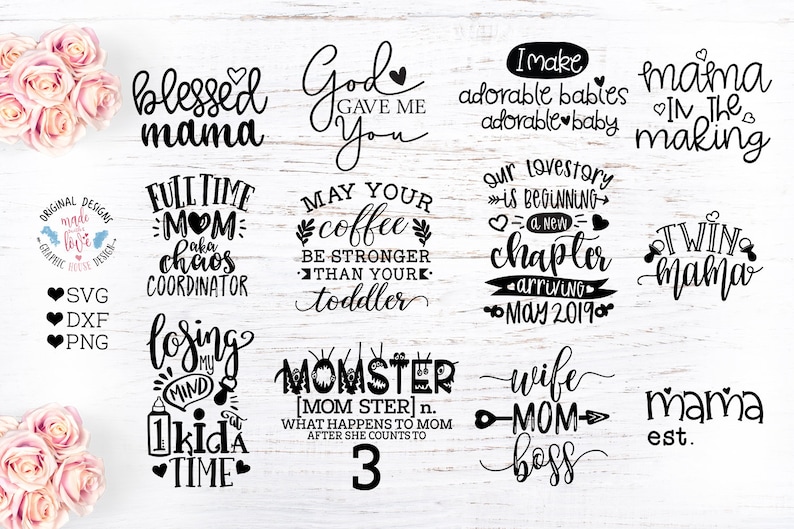 blessed
mama
God
GAVE ME
You
I make
adorable babies
adorable baby
mama
IN THE
making
ORIGINAL DESIGNS
made
with
love
GRAPHIC HOUSE DESIGN
SVG
DXF
PNG
FULL TIME
MOM
aka
chaos
COORDINATOR
MAY YOUR
coffee
BE STRONGER
THAN YOUR
toddler
our lovestory
is BEGiNNiNG
a new
chapter
arriving
MAY 2019
TWIN
mama
losing
MY
MIND
1 kid at A
TIME
MOMSTER
[MOM STER] n.
WHAT HAPPENS TO MOM
AFTER SHE COUNTS TO
3
wife
MOM
boss
mama
est.